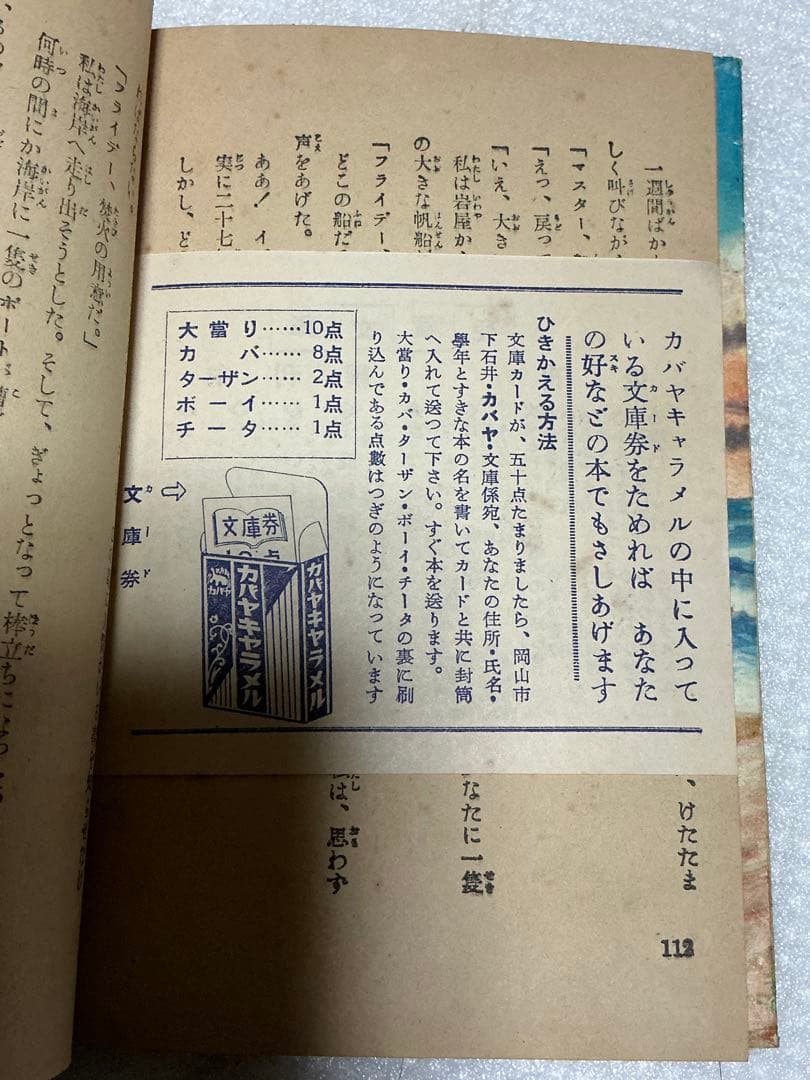 一週間ばか
、けたたま
しく叫びなが
「マスター、
「えっ、戻って
「いえ、大き
私は岩屋か
なたに一隻
の大きな帆船
「フライデー、
どこの船だ
は、思わず
声をあげた。
ああ！イ
実に二十七
しかし、ど
112
カバヤキャラメルの中に入つて
いる文庫券をためれば あなた
の好などの本でもさしあげます
ひきかえる方法
文庫カードが、五十点たまりましたら、岡山市
下石井・カバヤ・文庫係宛、あなたの住所・氏名・
學年とすきな本の名を書いてカードと共に封筒
へ入れて送つて下さい。すぐ本を送ります。
大當り・カバ・ターザン・ボーイ・チータの裏に刷
り込んである点數はつぎのようになつています
大當り……10点
カバ……8点
ターザン……2点
ボーイ……1点
チータ……1点
文庫券
文庫券
カバヤキャラメル
カバヤ
カバヤキャラメル
「フライデー、焚火の用意だ。」
私は海岸へ走り出そうとした。そして、ぎょっとなって棒立ちになっ
何時の間にか海岸に一隻のボートが